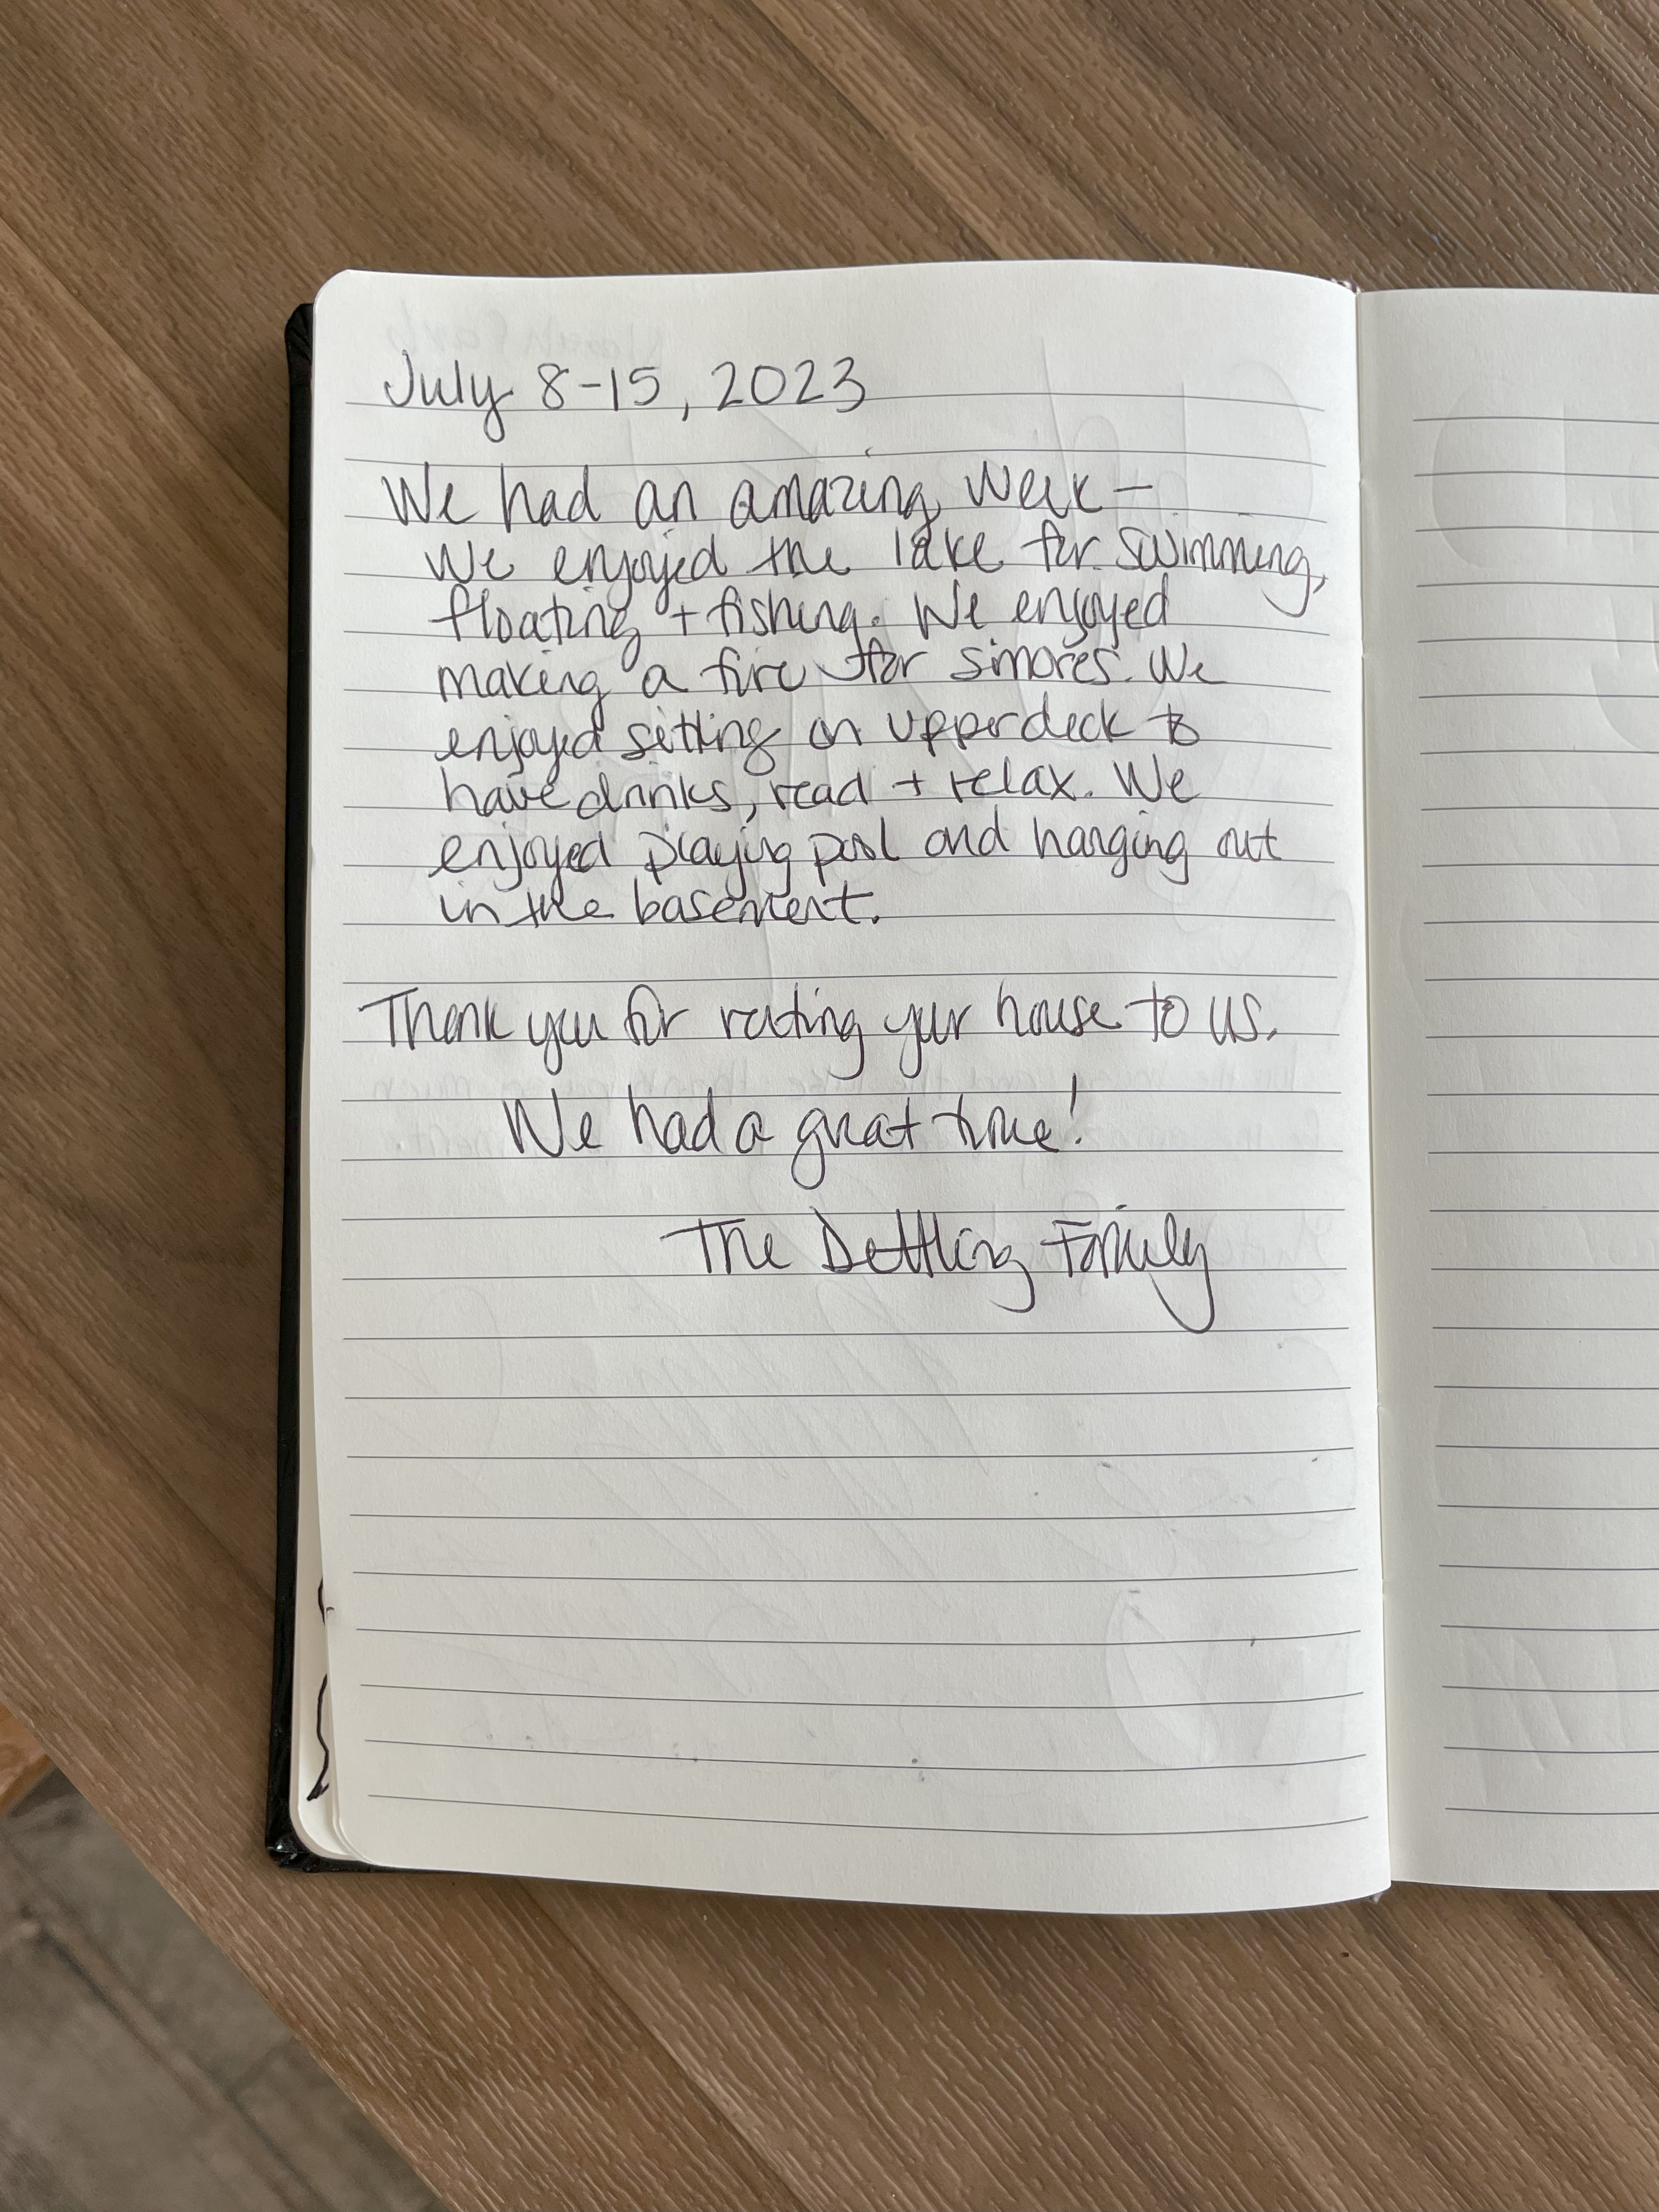 July 8-15, 2023
We had an amazing week —
we enjoyed the lake for swimming,
floating + fishing. We enjoyed
making a fire for smores. We
enjoyed sitting on upper deck to
have drinks, read + relax. We
enjoyed playing pool and hanging out
in the basement.
Thank you for renting your house to us.
We had a great time!
The Dettling Family